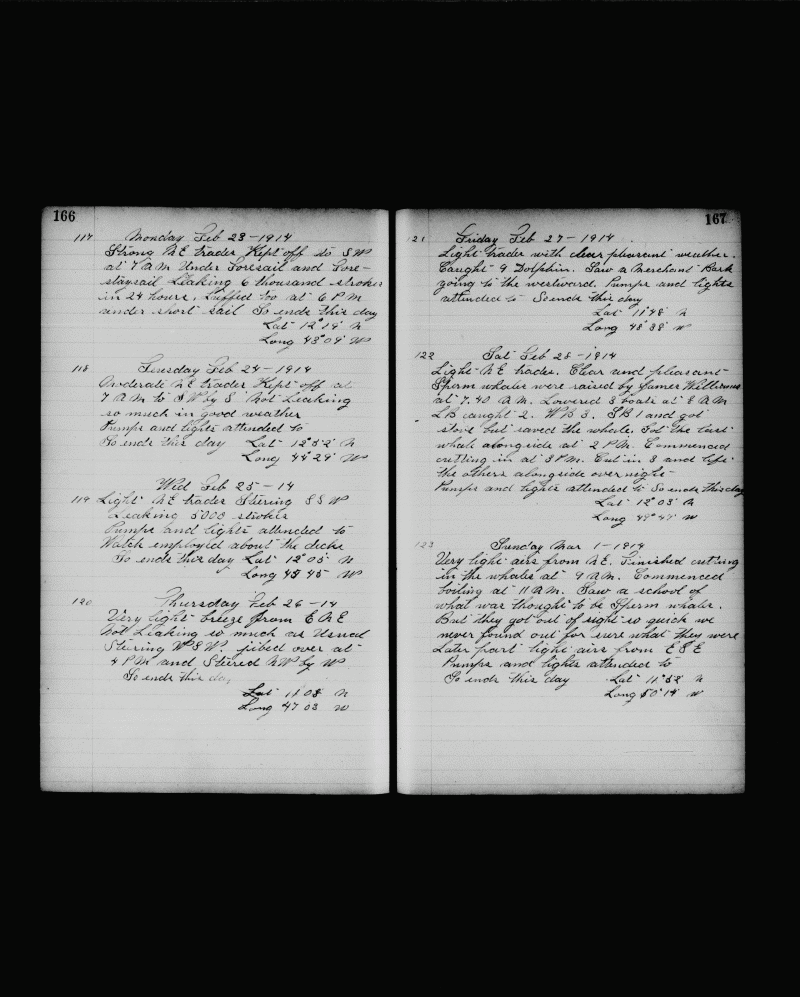 166
117 Monday Feb 23-1914
Strong NE trades Kept off to SW
at 7 AM Under Foresail and Fore-
staysail Leaking 6 thousand strokes
in 24 hours. Luffed too at 6 PM
under short sail So ends this day
Lat 12° 14' N
Long 43° 09' W
118 Tuesday Feb 24-1914
Moderate NE trades Kept off at
7 AM to SW by S Not Leaking
so much in good weather
Pumps and lights attended to
So ends this day Lat 12° 52' N
Long 44° 29' W
Wed Feb 25-14
119 Light NE trades Stering SSW
Leaking 5000 strokes
Pumps and lights attended to
Watch employed about the decks
So ends this day Lat 12° 05' N
Long 45 45' W
120 Thursday Feb 26-14
Very light breeze from ENE
Not Leaking so much as Usual
Stering WSW. jibed over at
4 PM and Stered NW by W
So ends this day
Lat 11° 08' N
Long 47 03 W
167
121 Friday Feb 27-1914
Light trades with clear pleasent weather.
Caught 9 Dolphin. Saw a Merchant Bark
going to the westward. Pumps and lights
attended to So ends this day
Lat 11° 48' N
Long 48° 38' W
122 Sat Feb 28-1914
Light NE trades. Clear and pleasant
Sperm whales were raised by James Williams
at 7.40 A.M. Lowered 3 boats at 8 AM
LB caught 2. WB 3. SB 1 and got
stove but saved the whale. Got the last
whale alongside at 2 PM. Commenced
cutting in at 3 PM. Cut in 3 and left
the others alongside over night
Pumps and lights attended to So ends this day
Lat 12° 03' N
Long 49° 47' W
123 Sunday Mar 1-1914
Very light airs from NE. Finished cutting
in the whales at 9 AM. Commenced
boiling at 11 AM. Saw a school of
what was thought to be Sperm whales.
But they got out of sight so quick we
never found out for sure what they were
Later part light airs from ESE
Pumps and lights attended to
So ends this day Lat 11° 52' N
Long 50° 14' W